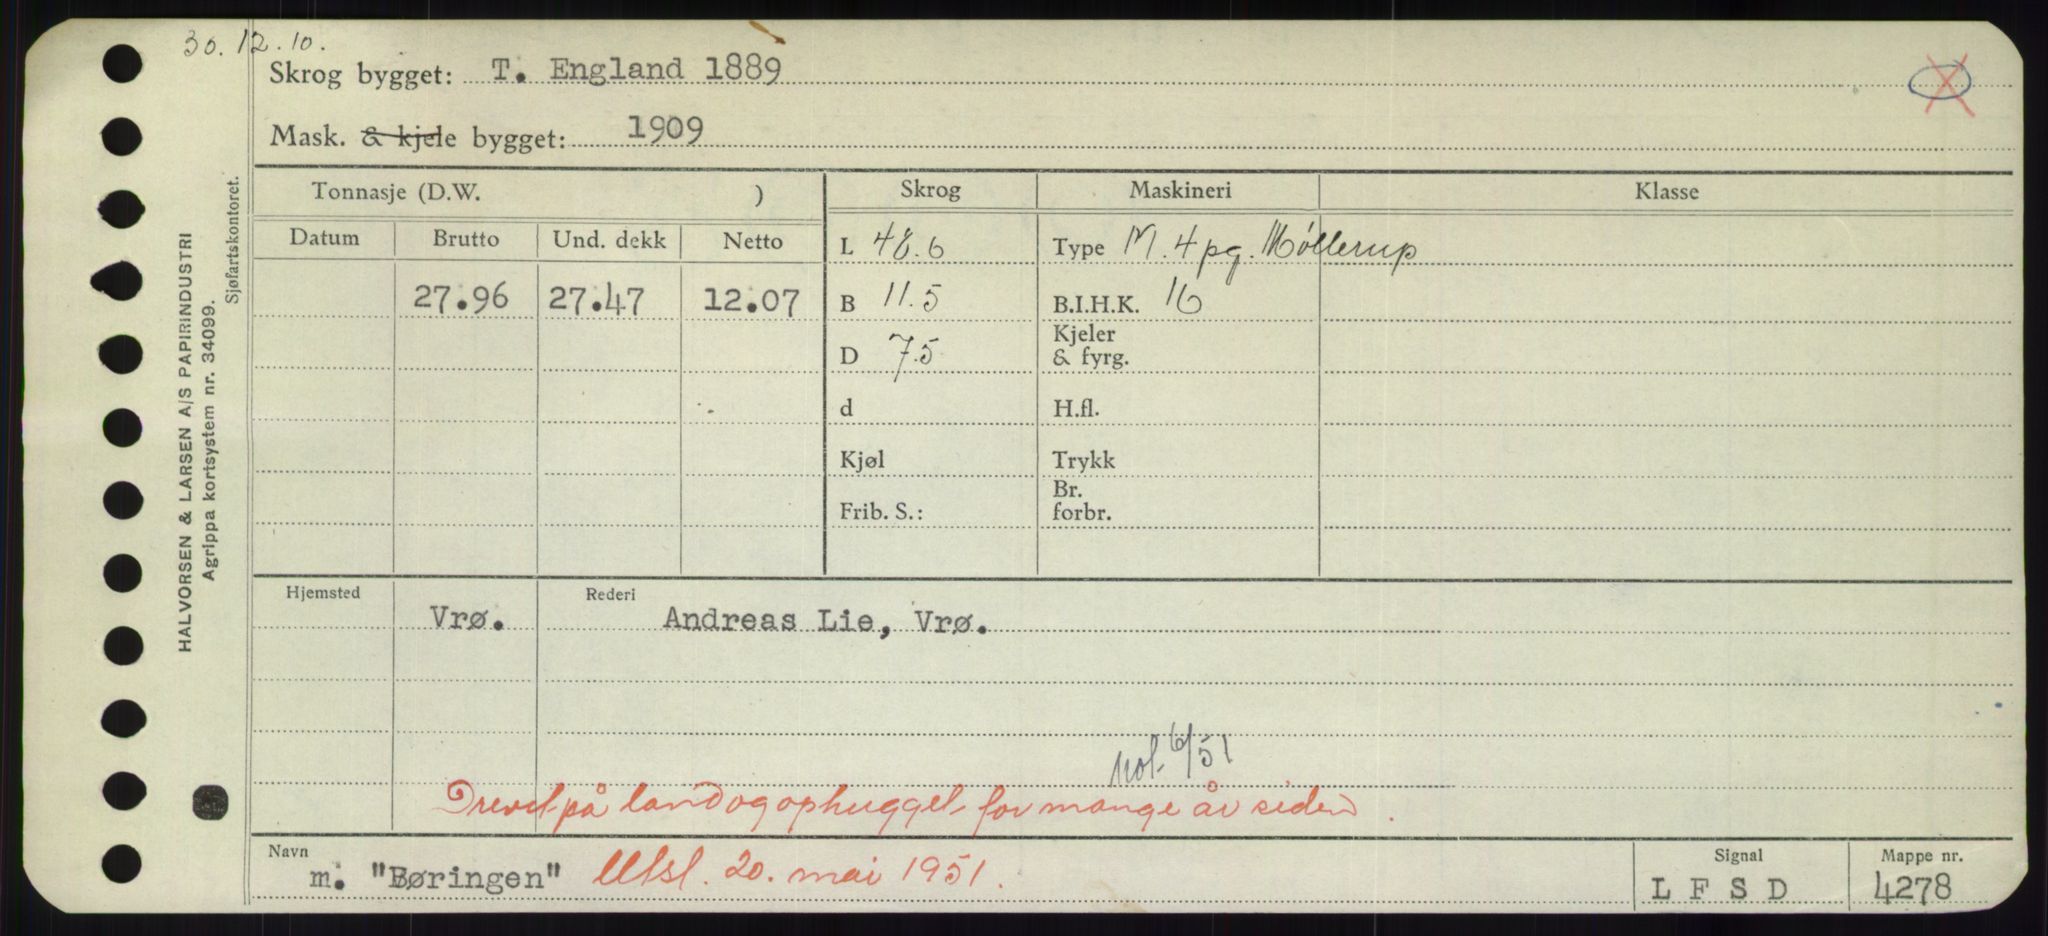 30.12.10.
Skrog bygget: T. England 1889
Mask. & kjele bygget: 1909
HALVORSEN & LARSEN A/S PAPIRINDUSTRI
Agrippa kortsystem nr. 34099.
Sjøfartskontoret.
Tonnasje (D.W. ) Skrog Maskineri Klasse
Datum Brutto Und. dekk Netto
L 48.6 Type M. 4pg. Møllerup
27.96 27.47 12.07 B 11.5 B.I.H.K. 16
D 7.5 Kjeler & fyrg.
d H.fl.
Kjøl Trykk
Frib. S.: Br. forbr.
Hjemsted Rederi
Vrø. Andreas Lie, Vrø.
6/51
Drevet på land og ophugget for mange år siden.
Navn Signal Mappe nr.
m. "Børingen" Utsl. 20. mai 1951. L F S D 4278